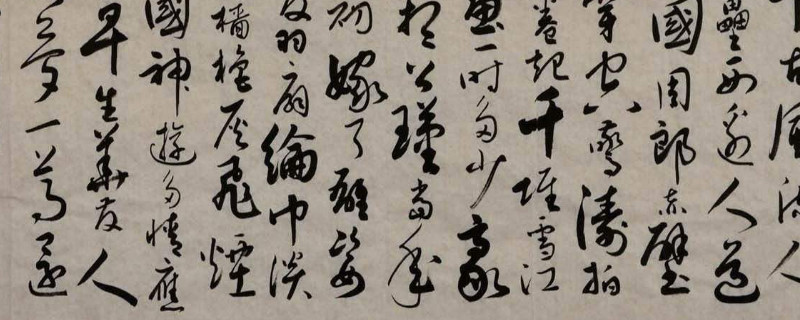 古風流人
壘西邊人道
國周郎赤壁
空驚濤拍
卷起千堆雪江
畫一時多少豪
想公瑾當年
初嫁了雄姿
發羽扇綸巾談
檣櫓灰飛煙
國神遊多情應
早生華髮人
夢一尊還